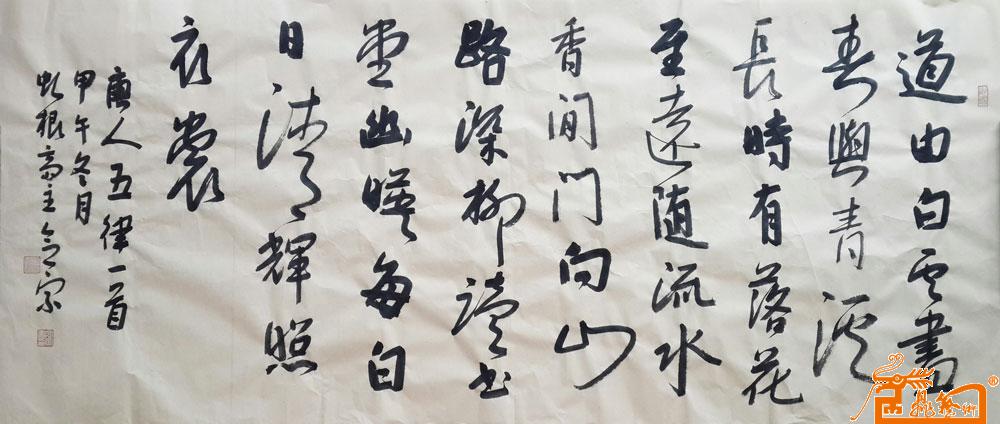 道由白雲盡
春與青溪
長時有落花
至遠随流水
香間門向山
路深柳讀書
堂幽暎每白
日清輝照
衣裳
唐人五律一首
甲午冬月
虬根斋主宗